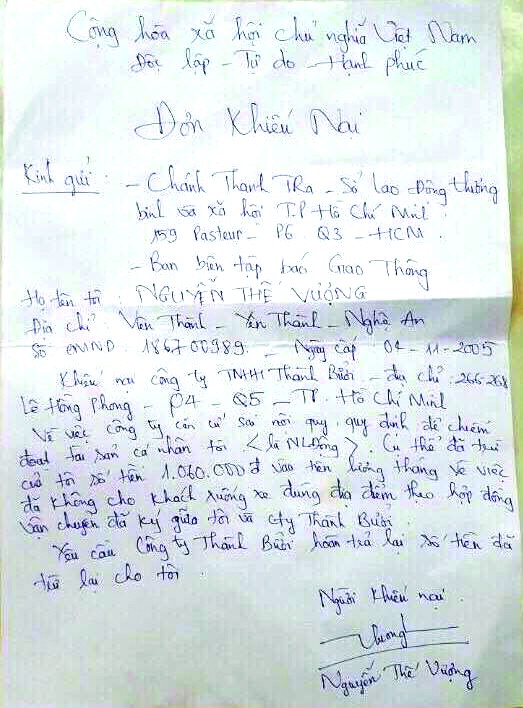 Cộng hòa xã hội chủ nghĩa Việt Nam
Độc lập - Tự do - Hạnh phúc
Đơn Khiếu Nại
Kính gửi : - Chánh Thanh TRa - Sở lao Động thương
binh và xã hội T.P Hồ Chí Minh.
159 Pasteur - P6 Q3 - HCM.
- Ban biên tập báo Giao Thông
Họ tên tôi : NGUYỄN THẾ VƯỢNG
Địa chỉ Viên Thành - Yên Thành - Nghệ An
Số CMND : 186700989. - Ngày cấp 04-11-2005
Khiếu nại công ty TNHH Thành Bưởi - địa chỉ : 266-268
Lê Hồng Phong - P4 - Q5 - TP. Hồ Chí Minh
Về việc công ty căn cứ sai nội quy, quy định để chiếm
đoạt tài sản cá nhân tôi <là NLĐộng>. Cụ thể đã trừ
của tôi số tiền 1.060.000đ vào tiền lương tháng về việc
đã không cho khách xuống xe đúng địa điểm theo hợp đồng
vận chuyển đã ký giữa tôi và cty Thành Bưởi.
Yêu cầu Công ty Thành Bưởi hoàn trả lại số tiền đã
trừ lại cho tôi.
Người khiếu nại.
Vượng
Nguyễn Thế Vượng